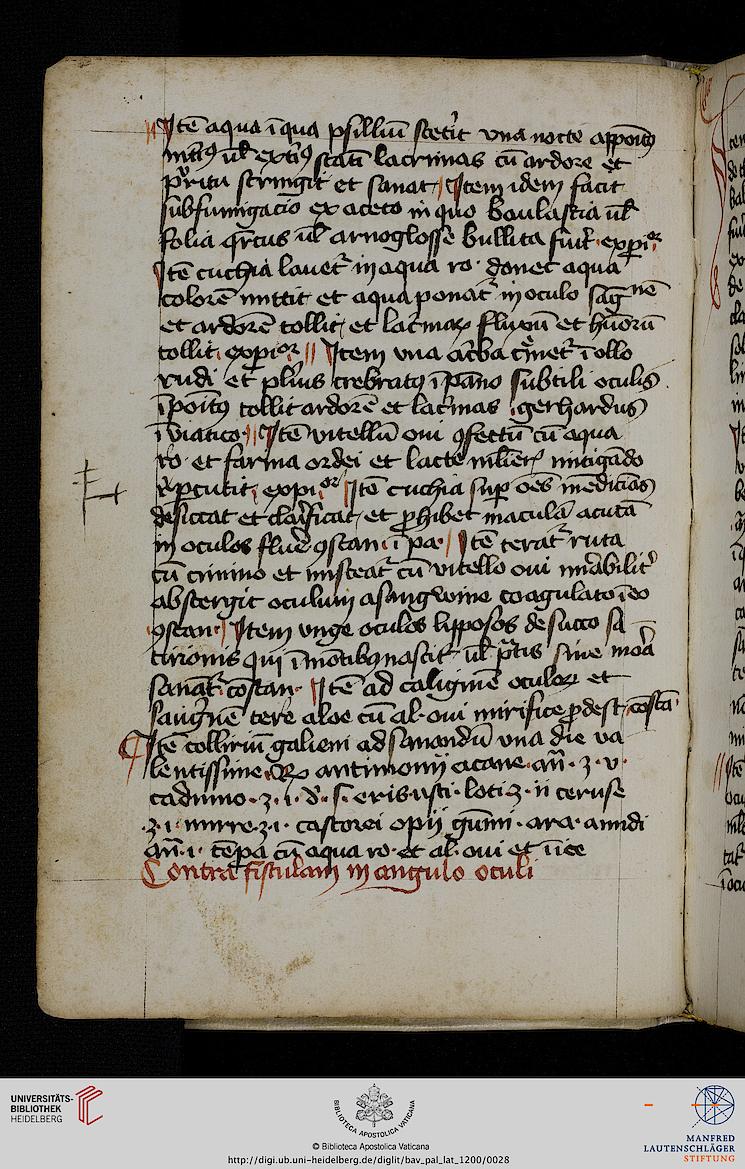 Itē aqua ī qua psilliū stet͛it una nocte appoītꝰ
int͛iꝰ ul̄ ext͛iꝰ statī lacrimas cū ardore et
p͛ritū stringit et sanat Itē idem facit
subfumigacio ex aceto in quo baulastia ul̄
folia q͛rcus ul̄ arnoglosse bullita fuīt
Itē cuchia lauet᷑ in aqua ro· donec aqua
colorē mittit et aqua ponat᷑ in oculo sāgnē
et ardorē tollit et lac͛maꝝ fluxū et hūorū
tollit Item una
rudi et crebratꝰ ī pāno subtili oculis
īpoītꝰ tollit ardorē et lac͛mas gerhardus
ī uiatico Itē uitellū oui ꝯfectū cū aqua
ro· et farina ordei et lacte mitigādo
Itē cuchia suꝑ oēs medicīas
desiccat et clarificat et ꝓhibet maculā acutā
in oculos ꝯstan· ī pa· Itē terat᷑ ruta
cū cimino et misceat᷑ cū uitello oui mirabilit͛
abstergit oculum a sangwine coagulato ī eo
ꝯstan· Item unge oculos lipposos de succo sa
tirionis qui ī mōtibꝰ nascit᷑ ul̄ p͛tis siue
sanat᷑ cōstan· Itē ad caliginē oculoꝝ et
sanguinē tere aloe cū al· oui mirifice ꝓdest cōstā·
Itē colliriū galieni ad sanandū una die ua
lentissime ℞ antimonij an̄· ʒ· v·
cadmino· ʒ· i· eris usti· loti ʒ· ii ceruse
ʒ· i· mirre ʒ i· castorei opij gūmi· ara· amidi
an̄· i· tēpa cū aqua ro· et al· oui et
Contra fistulam in angulo oculi
UNIVERSITÄTS-
BIBLIOTHEK
HEIDELBERG
BIBLIOTECA APOSTOLICA VATICANA
© Biblioteca Apostolica Vaticana
http://digi.ub.uni-heidelberg.de/diglit/bav_pal_lat_1200/0028
MANFRED
LAUTENSCHLÄGER
STIFTUNG